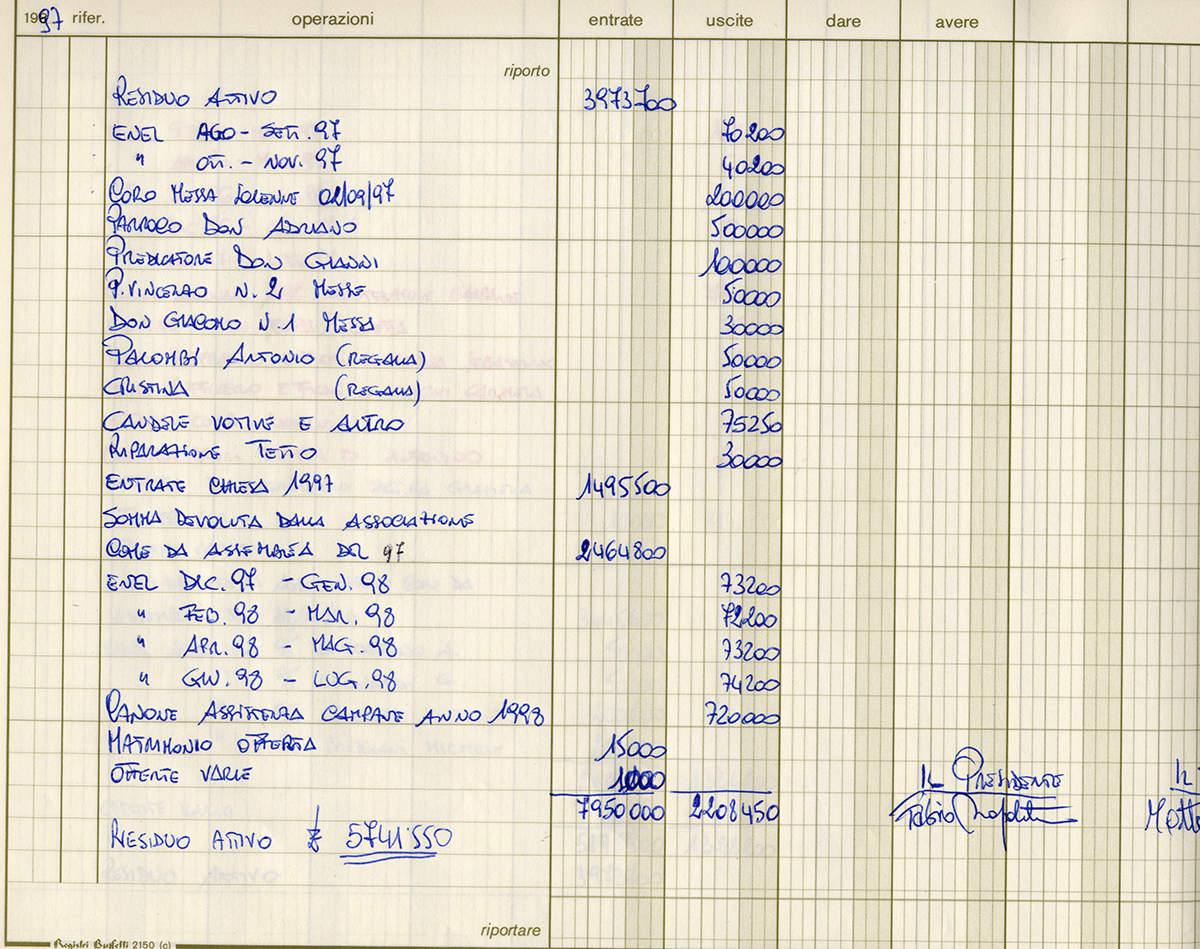 1997 rifer. operazioni entrate uscite dare avere
riporto
RESIDUO ATTIVO 3973700
ENEL AGO - SETT. 97 70200
" OTT. - NOV. 97 40200
CORO MESSA SOLENNE 02/09/97 200000
PARROCO DON ADRIANO 500000
PREDICATORE DON GIANNI 100000
P. VINCENZO N. 2 MESSE 50000
DON GIACOMO N. 1 MESSA 30000
PALOMBI ANTONIO (REGALIA) 50000
CRISTINA (REGALIA) 50000
CANDELE VOTIVE E ALTRO 75250
RIPARAZIONE TETTO 30000
ENTRATE CHIESA 1997 1495500
SOMMA DEVOLUTA DALLA ASSOCIAZIONE
COME DA ASSEMBLEA DEL 97 2464800
ENEL DIC. 97 - GEN. 98 73200
" FEB. 98 - MAR. 98 72200
" APR. 98 - MAG. 98 73200
" GIU. 98 - LUG. 98 74200
CANONE ASSISTENZA CAMPANE ANNO 1998 720000
MATRIMONIO OFFERTA 15000
OFFERTE VARIE 1000 IL PRESIDENTE
7950000 2208450 Fabio
RESIDUO ATTIVO £ 5741550
riportare
Registri Buffetti 2150 (c)